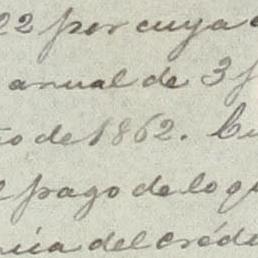 22 por cuya
anual de 3
de 1862.
pago de lo q
del créd